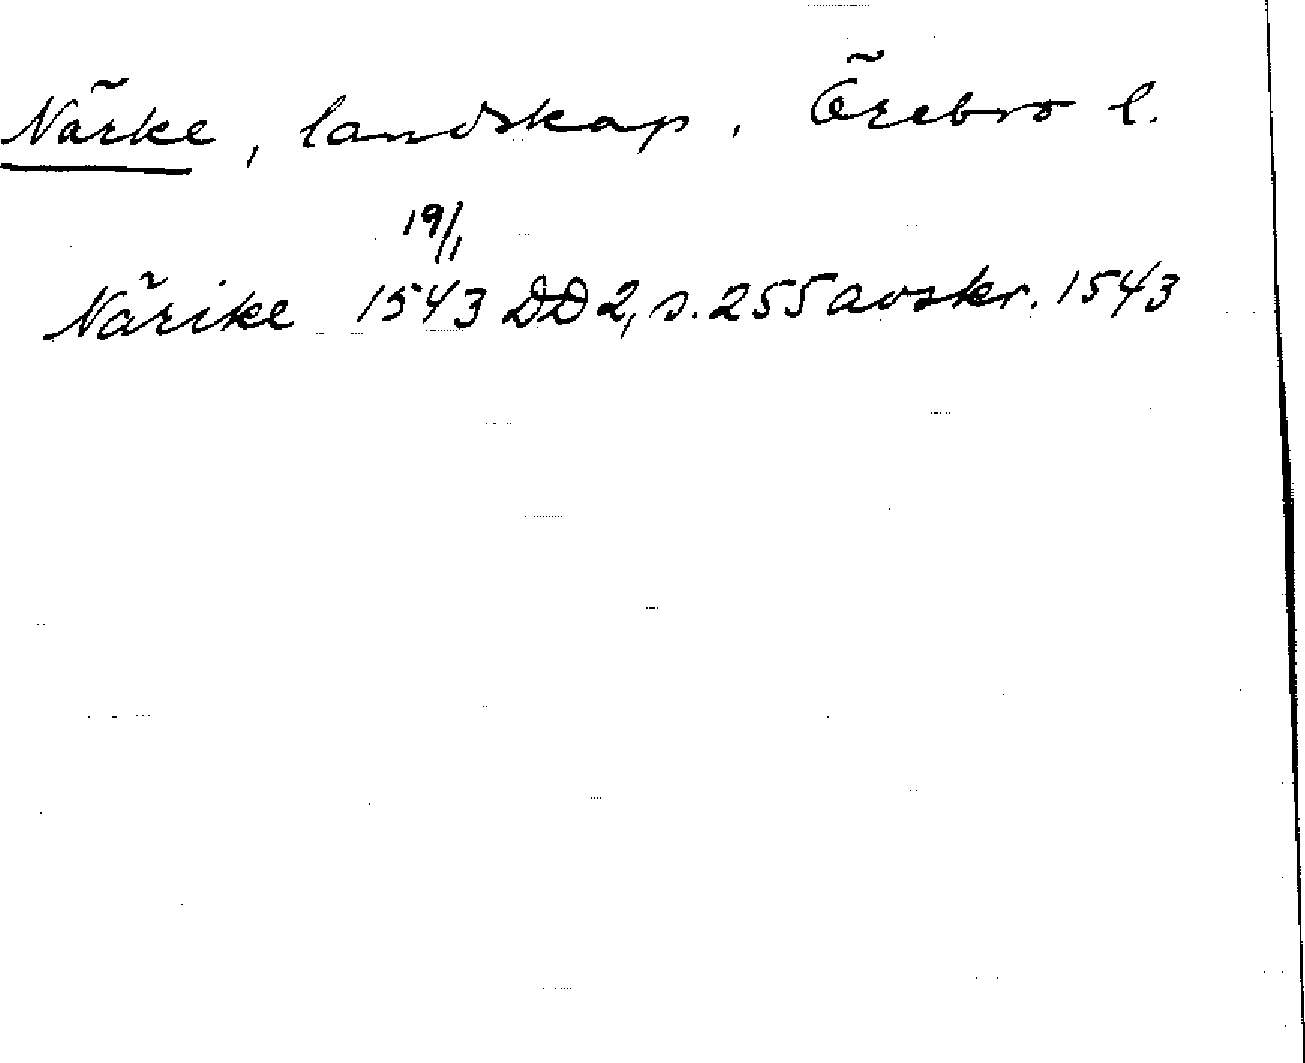 Närke, landskap, Örebro l.
19/1
Närike 1543 DD2, s. 255 avskr. 1543